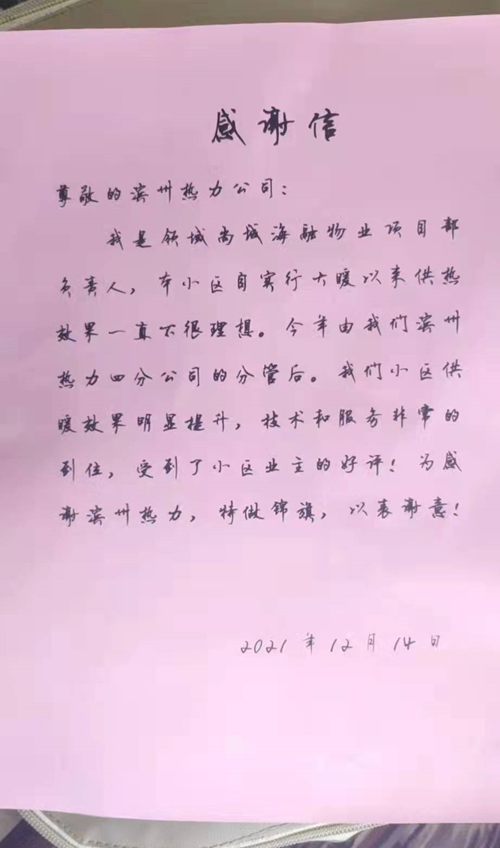 感谢信
尊敬的滨州热力公司：
我是领域尚城海融物业项目部
负责人，本小区自实行大暖以来供热
效果一直不很理想。今年由我们滨州
热力四分公司的分管后。我们小区供
暖效果明显提升，技术和服务非常的
到位，受到了小区业主的好评！为感
谢滨州热力，特做锦旗，以表谢意！
2021年12月14日